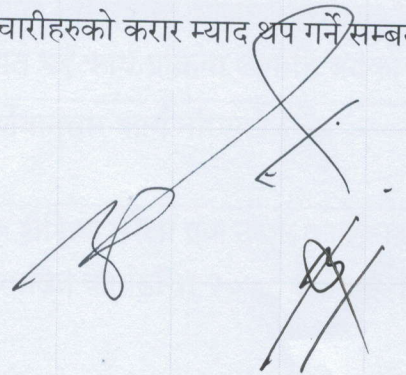 चारीहरुको करार म्याद थप गर्ने सम्ब